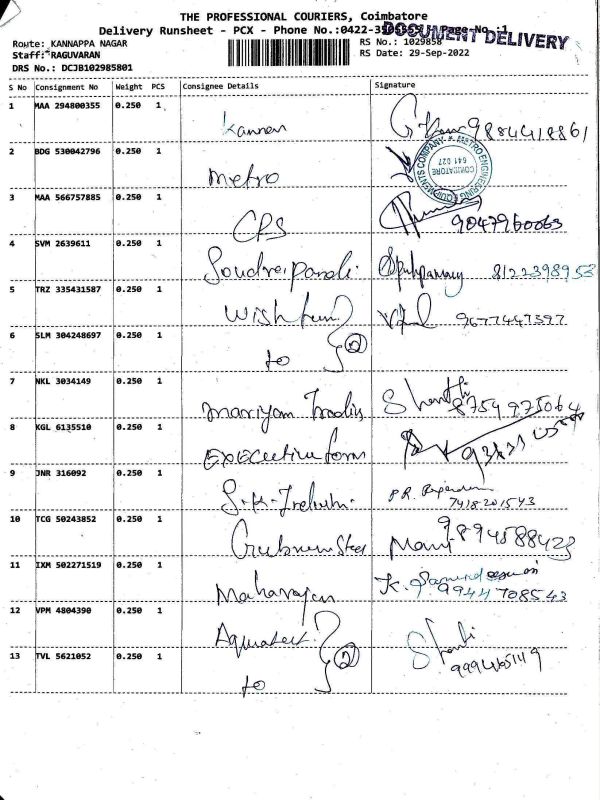 THE PROFESSIONAL COURIERS, Coimbatore
Delivery Runsheet - PCX - Phone No.:0422- Page No.:1
DOCUMENT DELIVERY
Route: KANNAPPA NAGAR
RS No.: 1029858
Staff: RAGUVARAN
RS Date: 29-Sep-2022
DRS No.: DCJB102985801
S No Consignment No Weight PCS Consignee Details Signature
1 MAA 294800355 0.250 1 Kannan 9884418861
2 BDG 530042796 0.250 1 Metro
METRO ENGINEERING EQUIPMENTS COMPANY * COIMBATORE 641 027
3 MAA 566757885 0.250 1 CPS 9047960063
4 SVM 2639611 0.250 1 8122398953
5 TRZ 335431587 0.250 1 Wish fun 9677447397
6 SLM 304248697 0.250 1 to 2
7 NKL 3034149 0.250 1 Mariyam Shanthi 8754975064
8 KGL 6135510 0.250 1 Executive form
9 JNR 316092 0.250 1 S.K. P.R. 7418201543
10 TCG 50243852 0.250 1 Mani 9894588423
11 IXM 502271519 0.250 1 Maharajan K. 9944708543
12 VPM 4804390 0.250 1 Aquatect
13 TVL 5621052 0.250 1 to 2